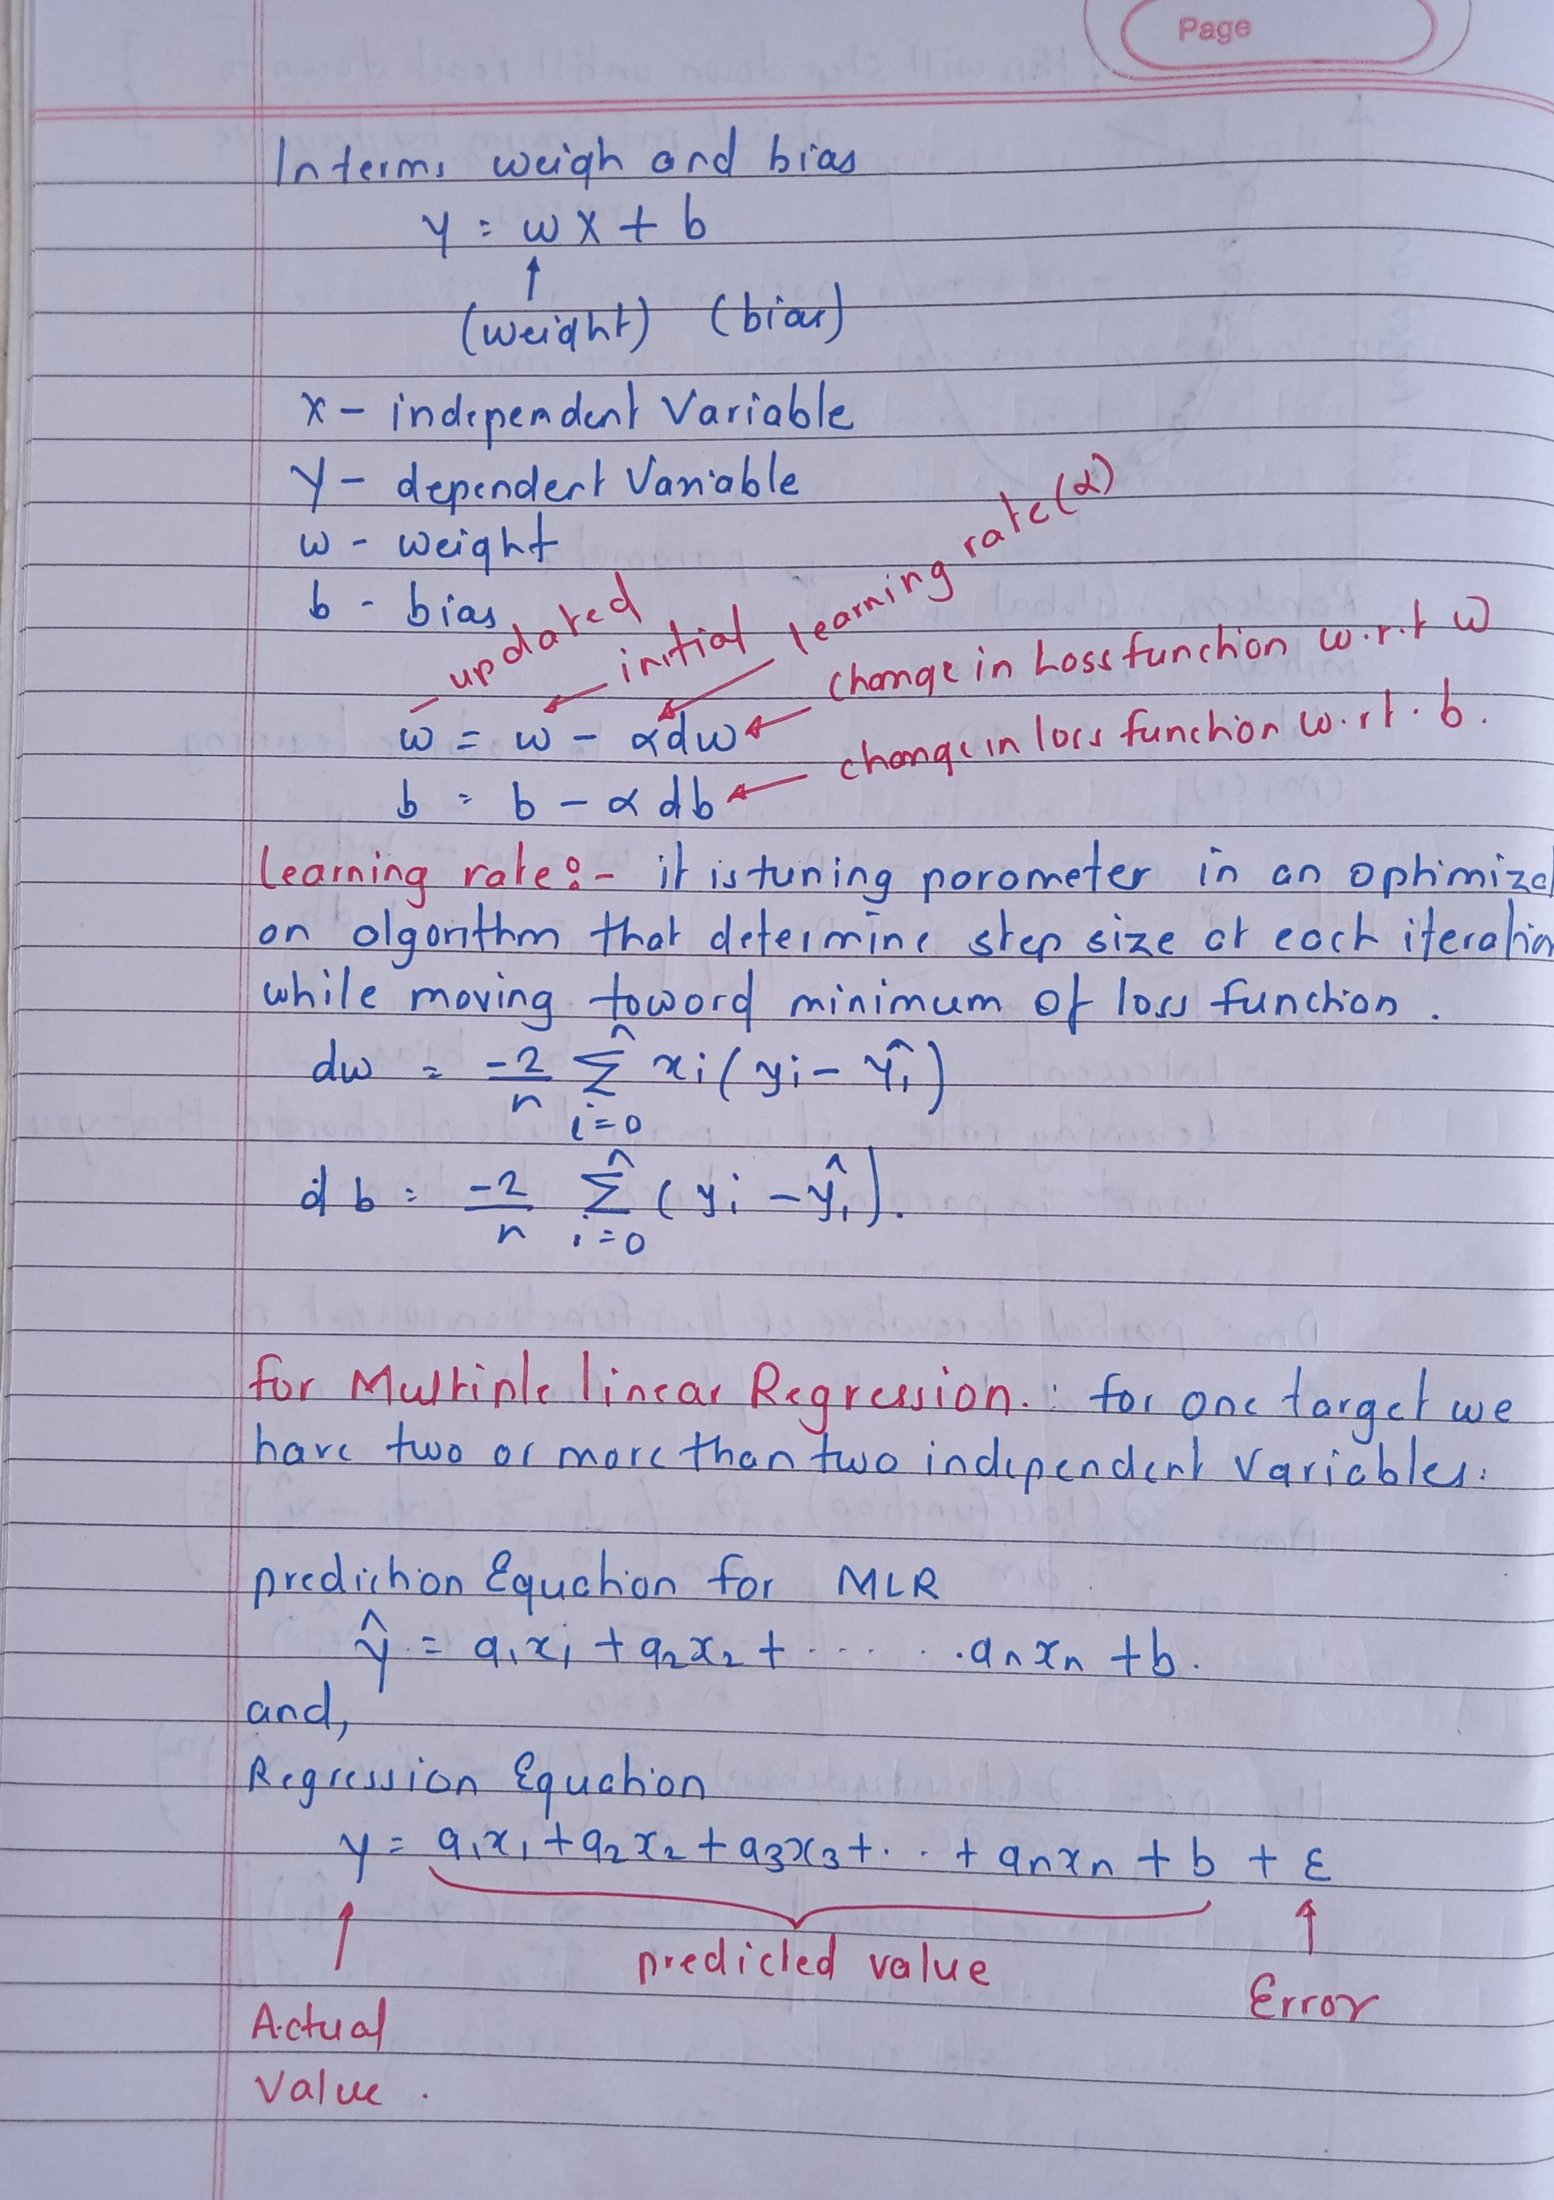 Page
In terms weigh and bias
y = wx + b
↑
(weight) (bias)
x - independent Variable
y - dependent Variable
w - weight
b - bias
updated initial learning rate (α)
change in Loss function w.r.t w
w = w - αdw
change in loss function w.r.t. b.
b = b - αdb
learning rate:- it is tuning parameter in an optimized
an algorithm that determine step size at each iteration
while moving toward minimum of loss function.
dw = -2/n Σ_{i=0}^{n} xi(yi - ŷi)
db = -2/n Σ_{i=0}^{n} (yi - ŷi).
for Multiple linear Regression.: for one target we
have two or more than two independent variables.
prediction Equation for MLR
ŷ = a₁x₁ + a₂x₂ + ...... anxn + b.
and,
Regression Equation
y = a₁x₁ + a₂x₂ + a₃x₃ + .. + anxn + b + ε
↑ predicted value ↑
Error
Actual
Value.